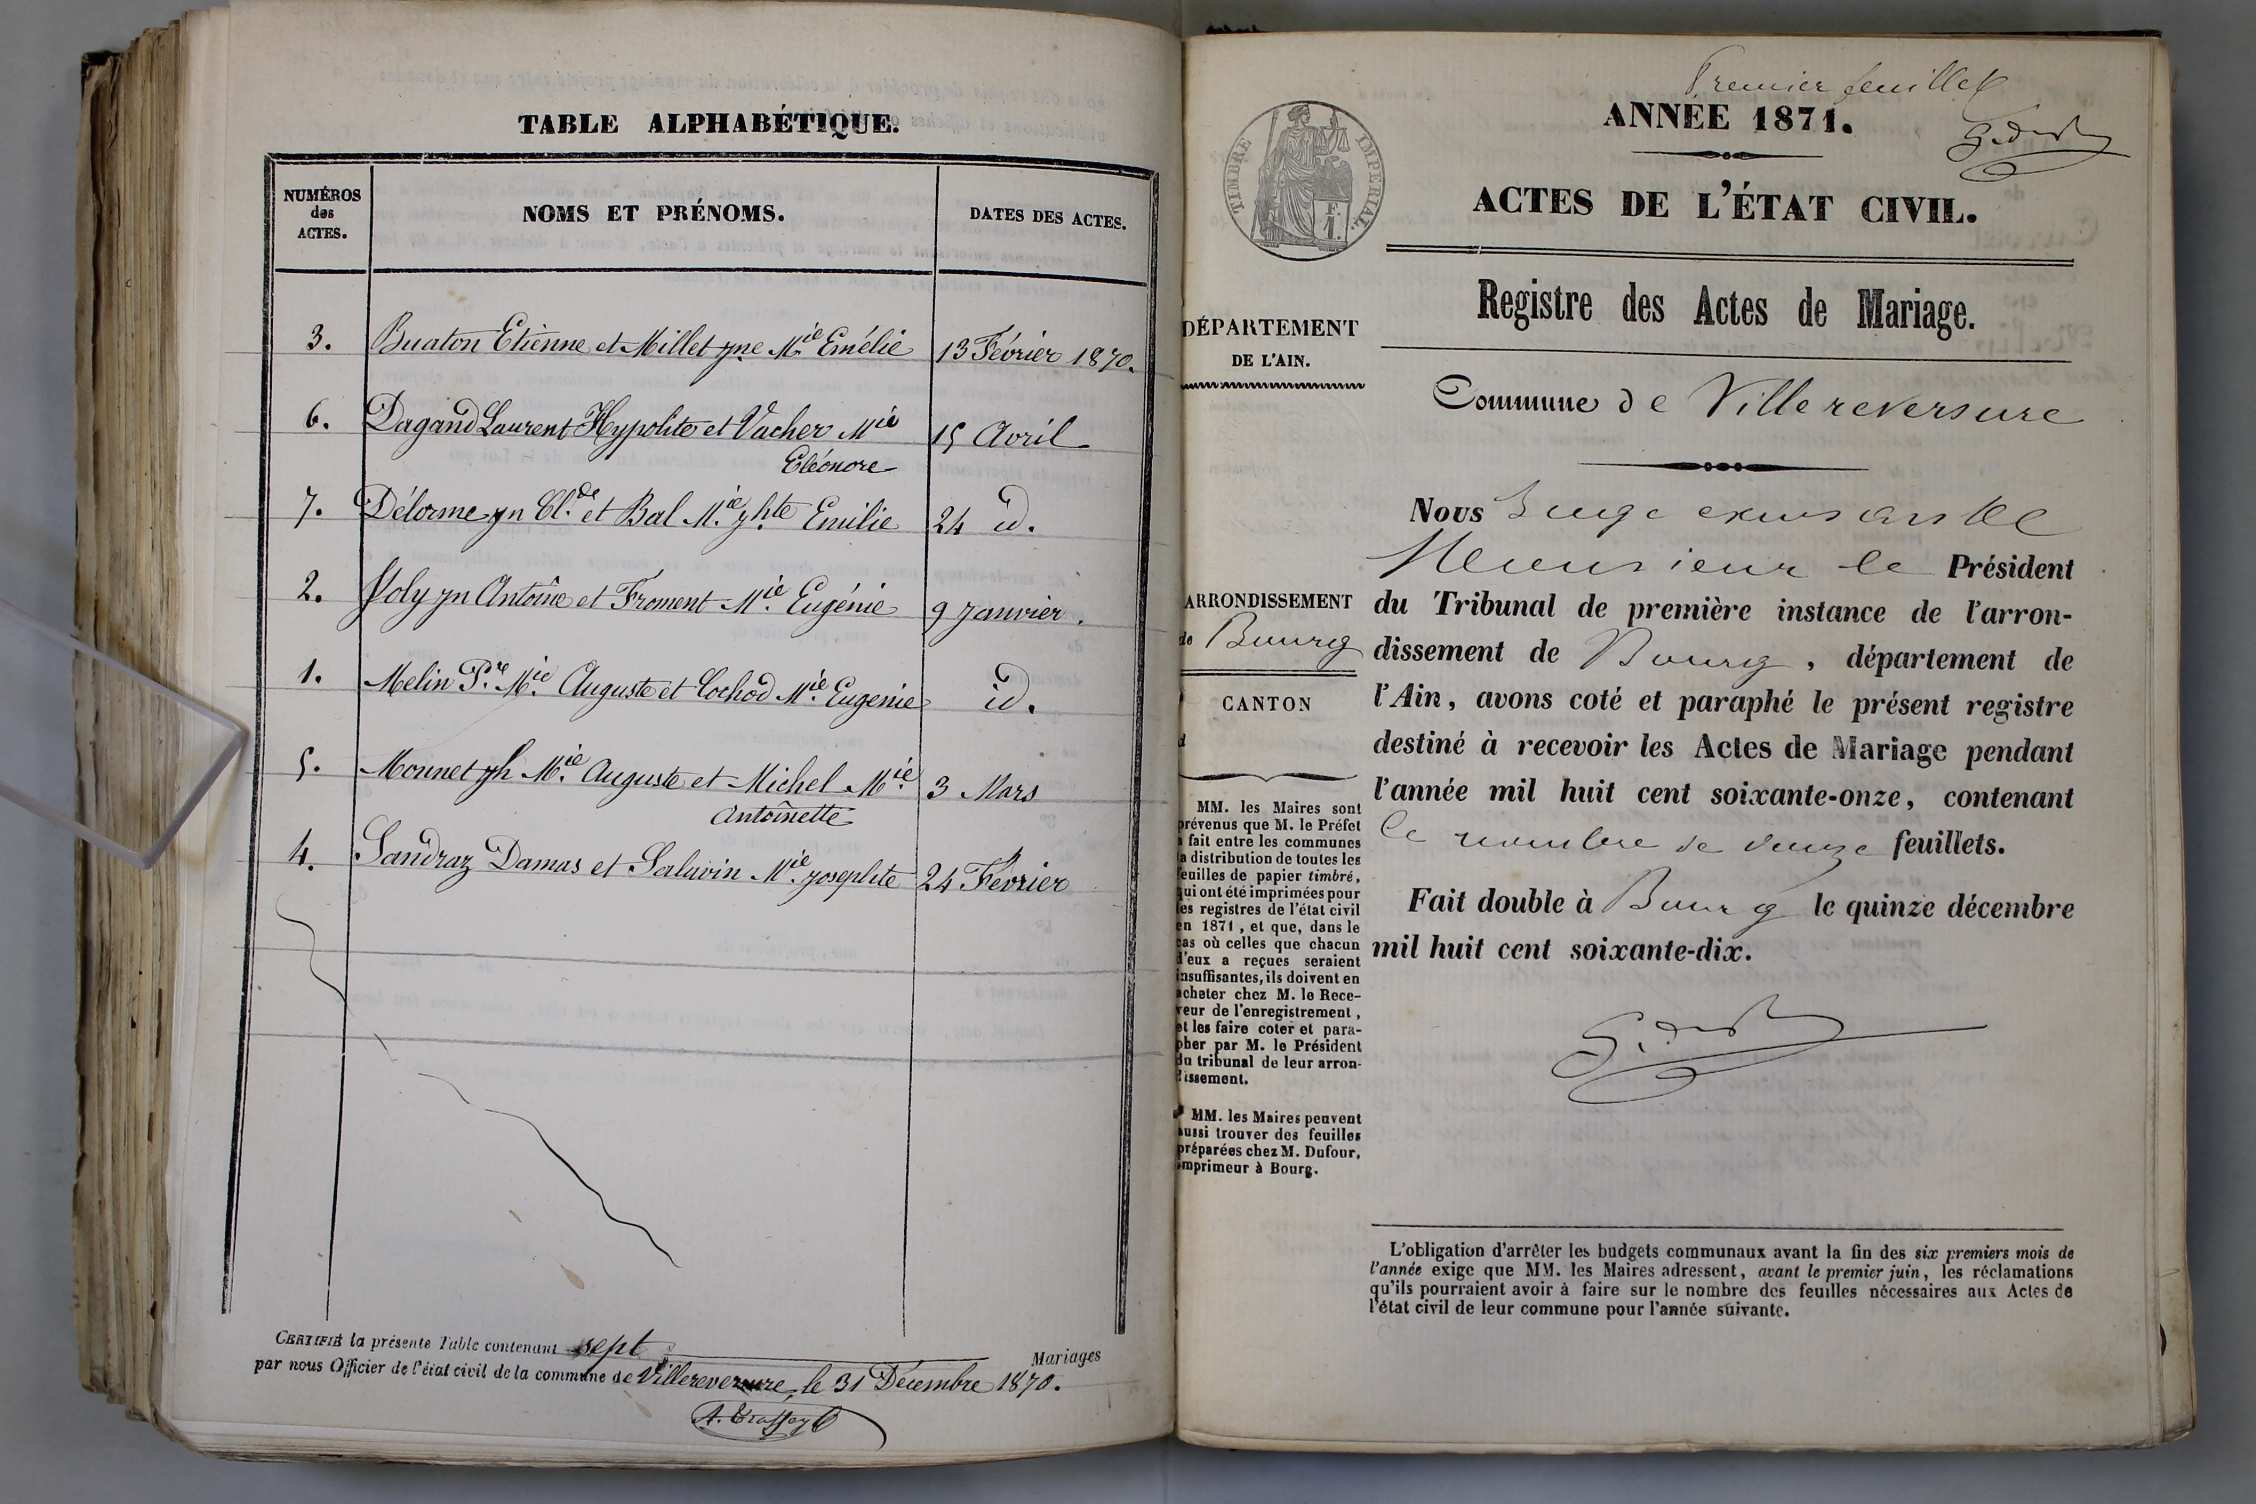 TABLE ALPHABÉTIQUE.
NUMÉROS
des
ACTES.
NOMS ET PRÉNOMS.
DATES DES ACTES.
3. Buaton Etienne et Millet jne Mie Emélie 13 Février 1870.
6. Dagand Laurent Hypolite et Vacher Mie 15 Avril
Eléonore
7. Délorme jn Cl.de et Bal M.ie jhte Emilie 24 id.
2. Joly jn Antoine et Froment Mie Eugénie 9 janvier.
1. Melin P.re Mie Auguste et Cochod Mie Eugenie id.
5. Monnet jh Mie Auguste et Michel Mie 3 Mars
Antoinette
4. Sandraz Damas et Saluvin Mie josephte 24 Février
CERTIFIÉ la présente Table contenant sept Mariages
par nous Officier de l'état civil de la commune de Villereversure, le 31 Décembre 1870.
Premier feuillet
TIMBRE IMPERIAL.
F.
1.
ANNÉE 1871.
ACTES DE L'ÉTAT CIVIL.
Registre des Actes de Mariage.
DÉPARTEMENT
DE L'AIN.
Commune de Villereversure
ARRONDISSEMENT
de Bourg
CANTON
d
MM. les Maires sont
prévenus que M. le Préfet
a fait entre les communes
la distribution de toutes les
feuilles de papier timbré,
qui ont été imprimées pour
les registres de l'état civil
en 1871, et que, dans le
cas où celles que chacun
d'eux a reçues seraient
insuffisantes, ils doivent en
acheter chez M. le Rece-
veur de l'enregistrement,
et les faire coter et para-
pher par M. le Président
du tribunal de leur arron-
dissement.
MM. les Maires peuvent
aussi trouver des feuilles
préparées chez M. Dufour,
imprimeur à Bourg.
Nous Juge
Monsieur le Président
du Tribunal de première instance de l'arron-
dissement de Bourg, département de
l'Ain, avons coté et paraphé le présent registre
destiné à recevoir les Actes de Mariage pendant
l'année mil huit cent soixante-onze, contenant
le nombre de douze feuillets.
Fait double à Bourg le quinze décembre
mil huit cent soixante-dix.
L'obligation d'arrêter les budgets communaux avant la fin des six premiers mois de
l'année exige que MM. les Maires adressent, avant le premier juin, les réclamations
qu'ils pourraient avoir à faire sur le nombre des feuilles nécessaires aux Actes de
l'état civil de leur commune pour l'année suivante.